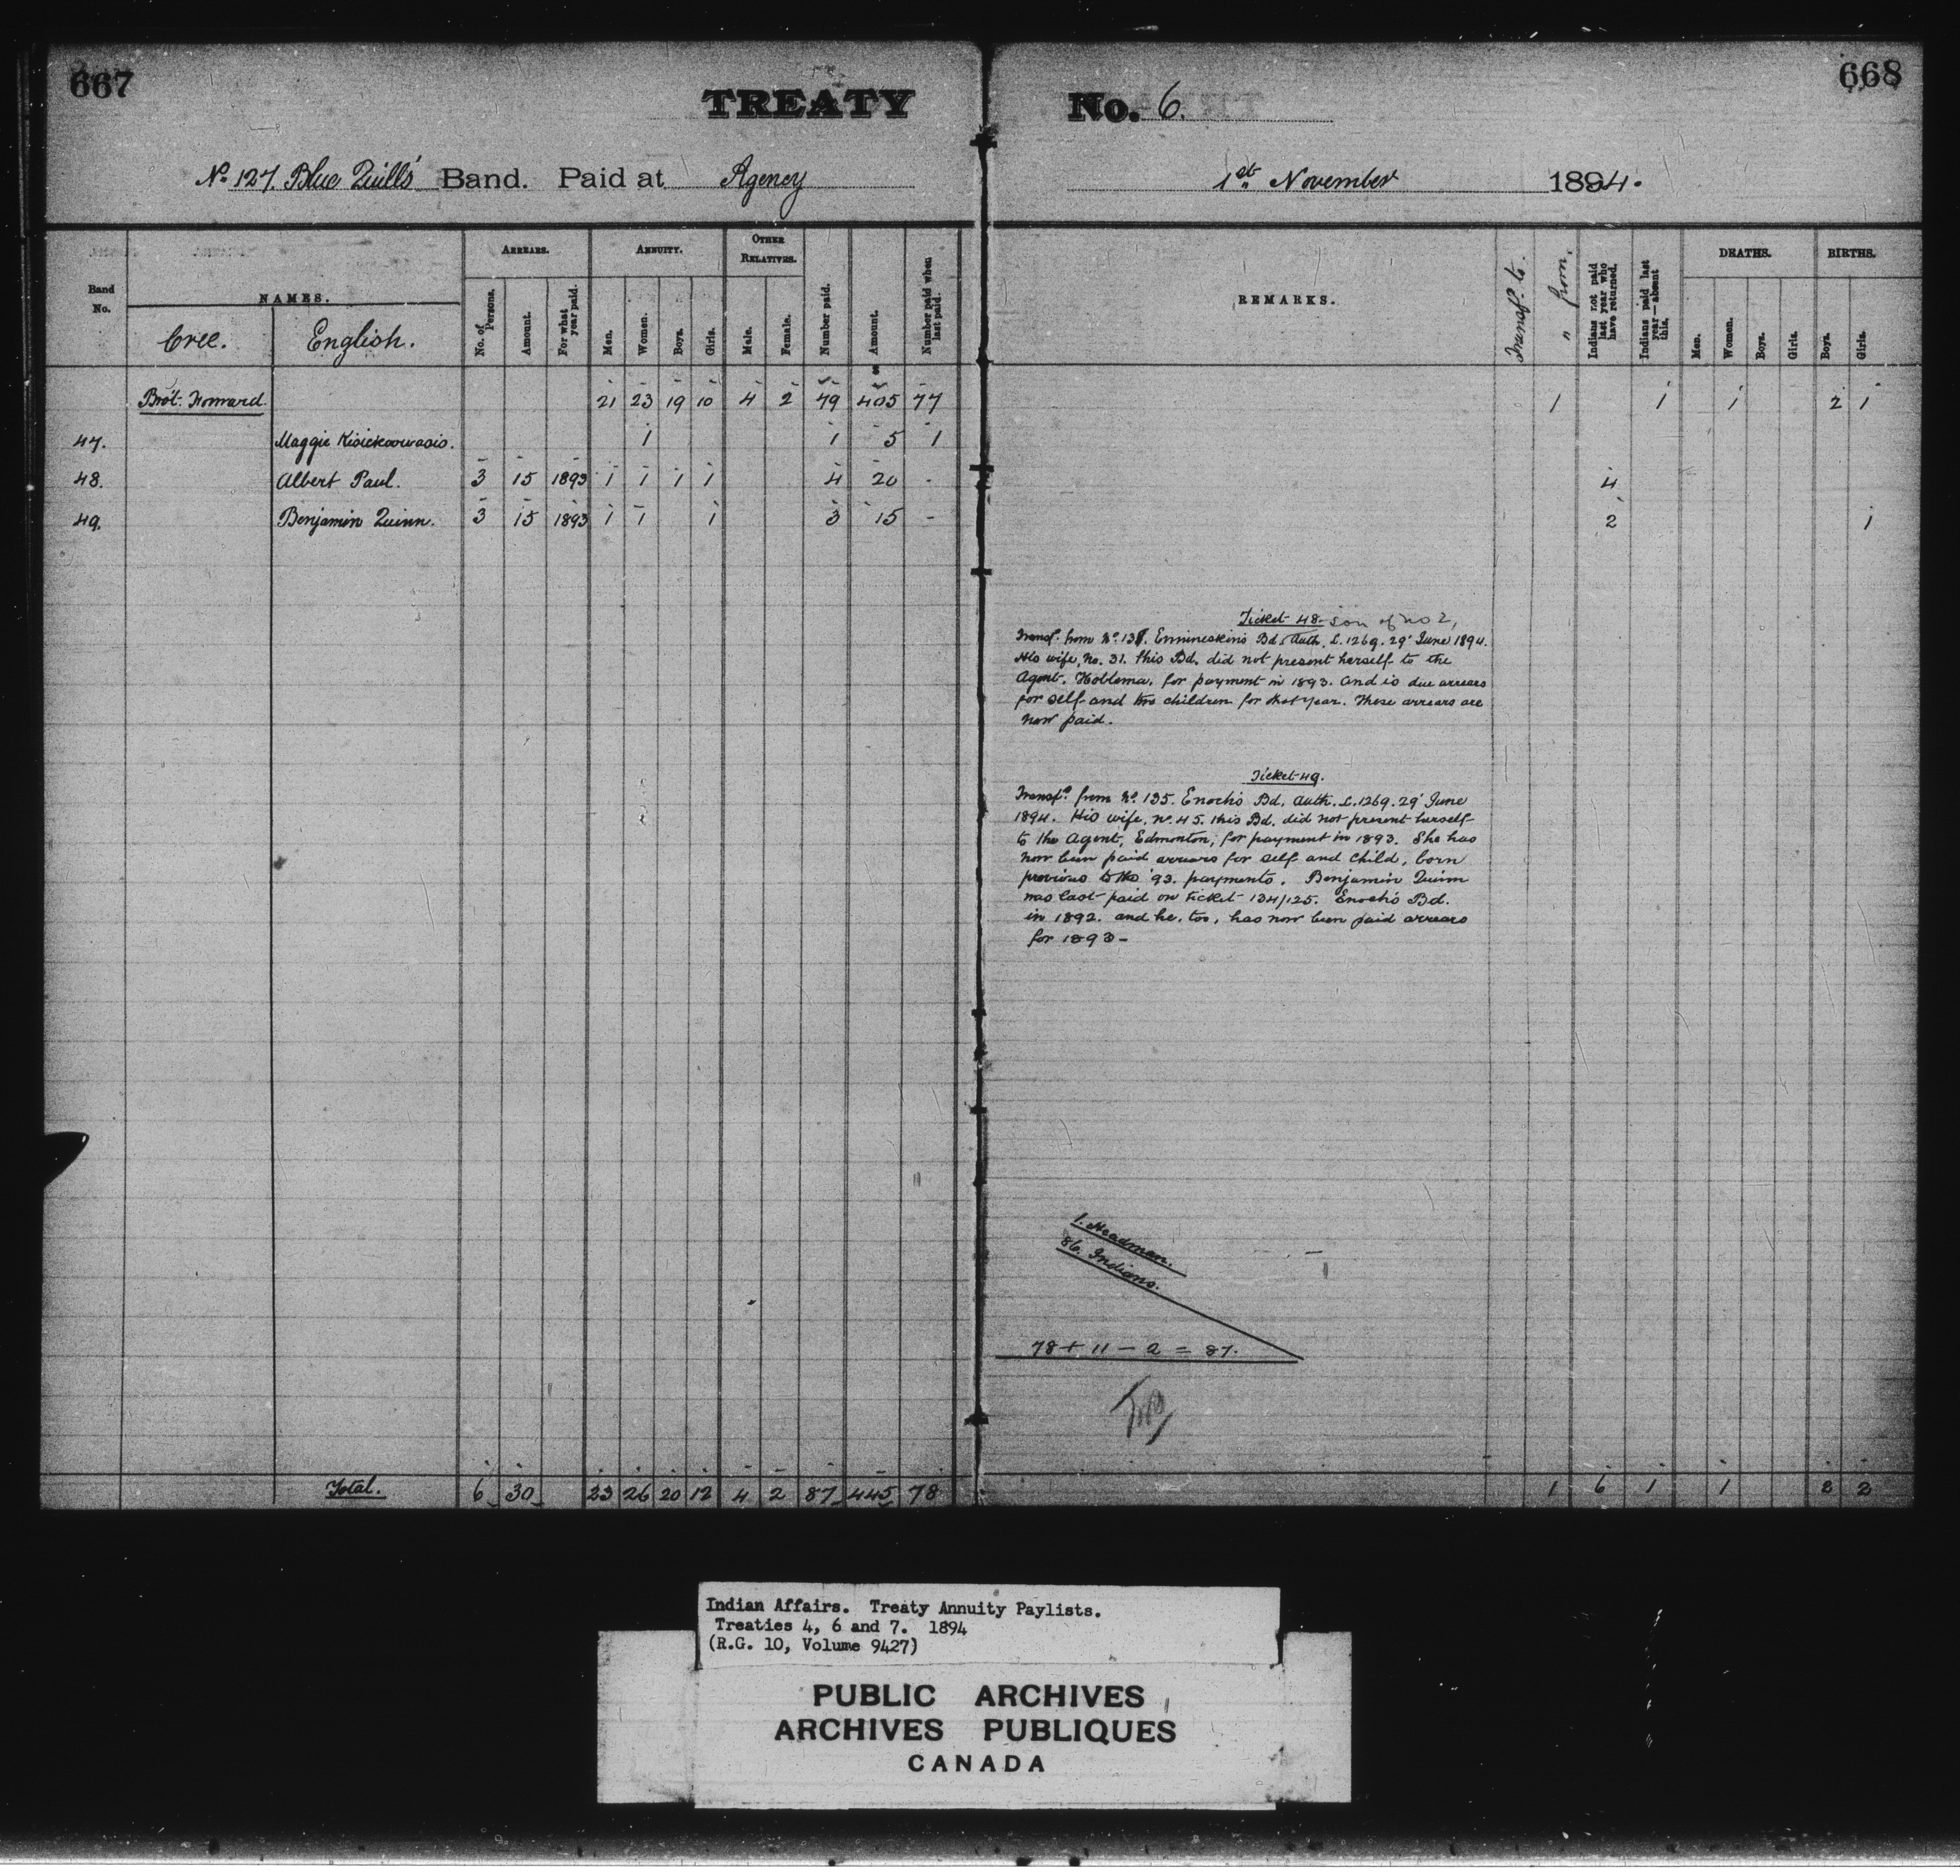 667
TREATY
No. 6.
668
No. 127. Blue Quills' Band. Paid at Agency
1st November 1894.
Band No.
NAMES.
Cree. English.
ARREARS.
No. of Persons. Amount. For what year paid.
ANNUITY.
Men. Women. Boys. Girls.
OTHER RELATIVES.
Male. Female.
Number paid. Amount. Number paid when last paid.
REMARKS.
Transf. to. " from.
Indians not paid last year who have returned.
Indians paid last year—absent this.
DEATHS.
Men. Women. Boys. Girls.
BIRTHS.
Boys. Girls.
Brot. Forward 21 23 19 10 4 2 79 405 77 1 1 1 2 1
47. Maggie 1 1 5 1
48. Albert Paul. 3 15 1893 1 1 1 1 4 20 - 4
49. Benjamin Quinn. 3 15 1893 1 1 1 3 15 - 2 1
Ticket 48 - son of No 2,
Transf. from No. Ermineskin's Bd. Auth. L. 1269. 29' June 1894.
His wife, No. 31. this Bd. did not present herself to the
Agent. Hobbema, for payment in 1893. and is due arrears
for self and two children for that year. These arrears are
now paid.
Ticket 49.
Transfd. from No. 135. Enoch's Bd. Auth. L. 1269. 29' June
1894. His wife, No. 45. this Bd. did not present herself
to the Agent, Edmonton, for payment in 1893. She has
now been paid arrears for self and child, born
previous to the '93. payments. Benjamin Quinn
was last paid on ticket 134/125. Enoch's Bd.
in 1892. and he, too, has now been paid arrears
for 1893 -
1. Headman.
86. Indians.
78 + 11 - 2 = 87.
Total. 6 30 23 26 20 12 4 2 87 445 78 1 6 1 1 2 2
Indian Affairs. Treaty Annuity Paylists.
Treaties 4, 6 and 7. 1894
(R.G. 10, Volume 9427)
PUBLIC ARCHIVES
ARCHIVES PUBLIQUES
CANADA